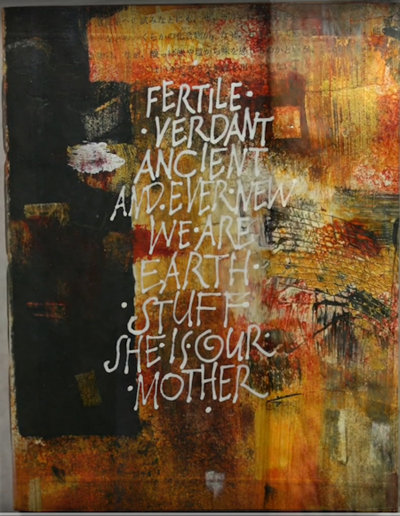 FERTILE·
·VERDANT
ANCIENT
AND·EVER·NEW
WE·ARE
EARTH·
·STUFF
SHE·IS·OUR·
·MOTHER